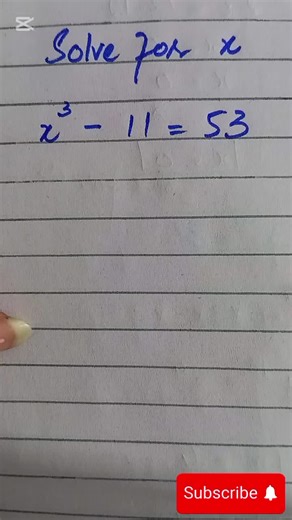 Solve for x
x³ - 11 = 53
Subscribe